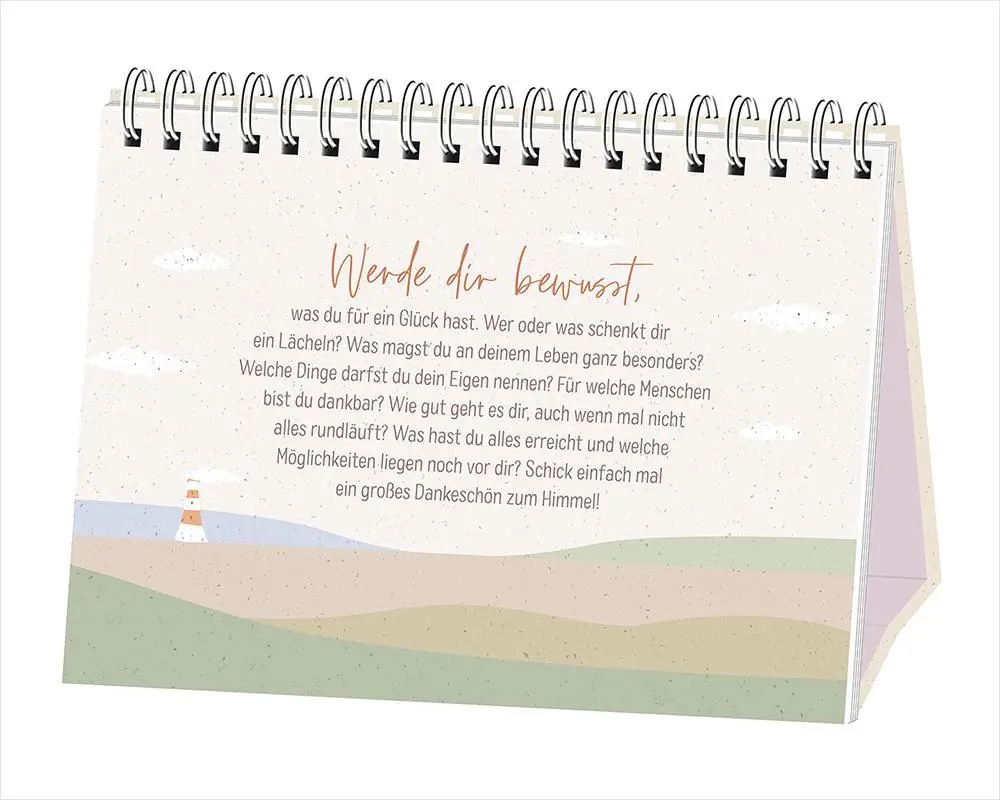 Werde dir bewusst,
was du für ein Glück hast. Wer oder was schenkt dir
ein Lächeln? Was magst du an deinem Leben ganz besonders?
Welche Dinge darfst du dein Eigen nennen? Für welche Menschen
bist du dankbar? Wie gut geht es dir, auch wenn mal nicht
alles rundläuft? Was hast du alles erreicht und welche
Möglichkeiten liegen noch vor dir? Schick einfach mal
ein großes Dankeschön zum Himmel!